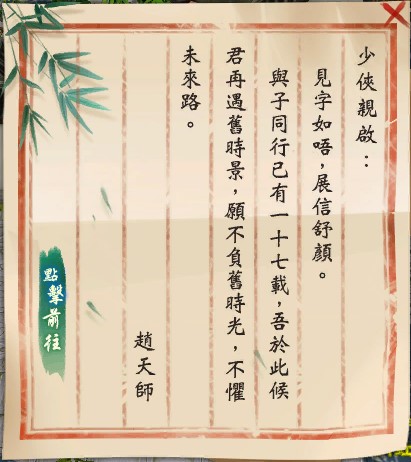 少俠親啟：
見字如唔，展信舒顏。
與子同行已有一十七載，吾於此候
君再遇舊時景，願不負舊時光，不懼
未來路。
趙天師
點擊前往